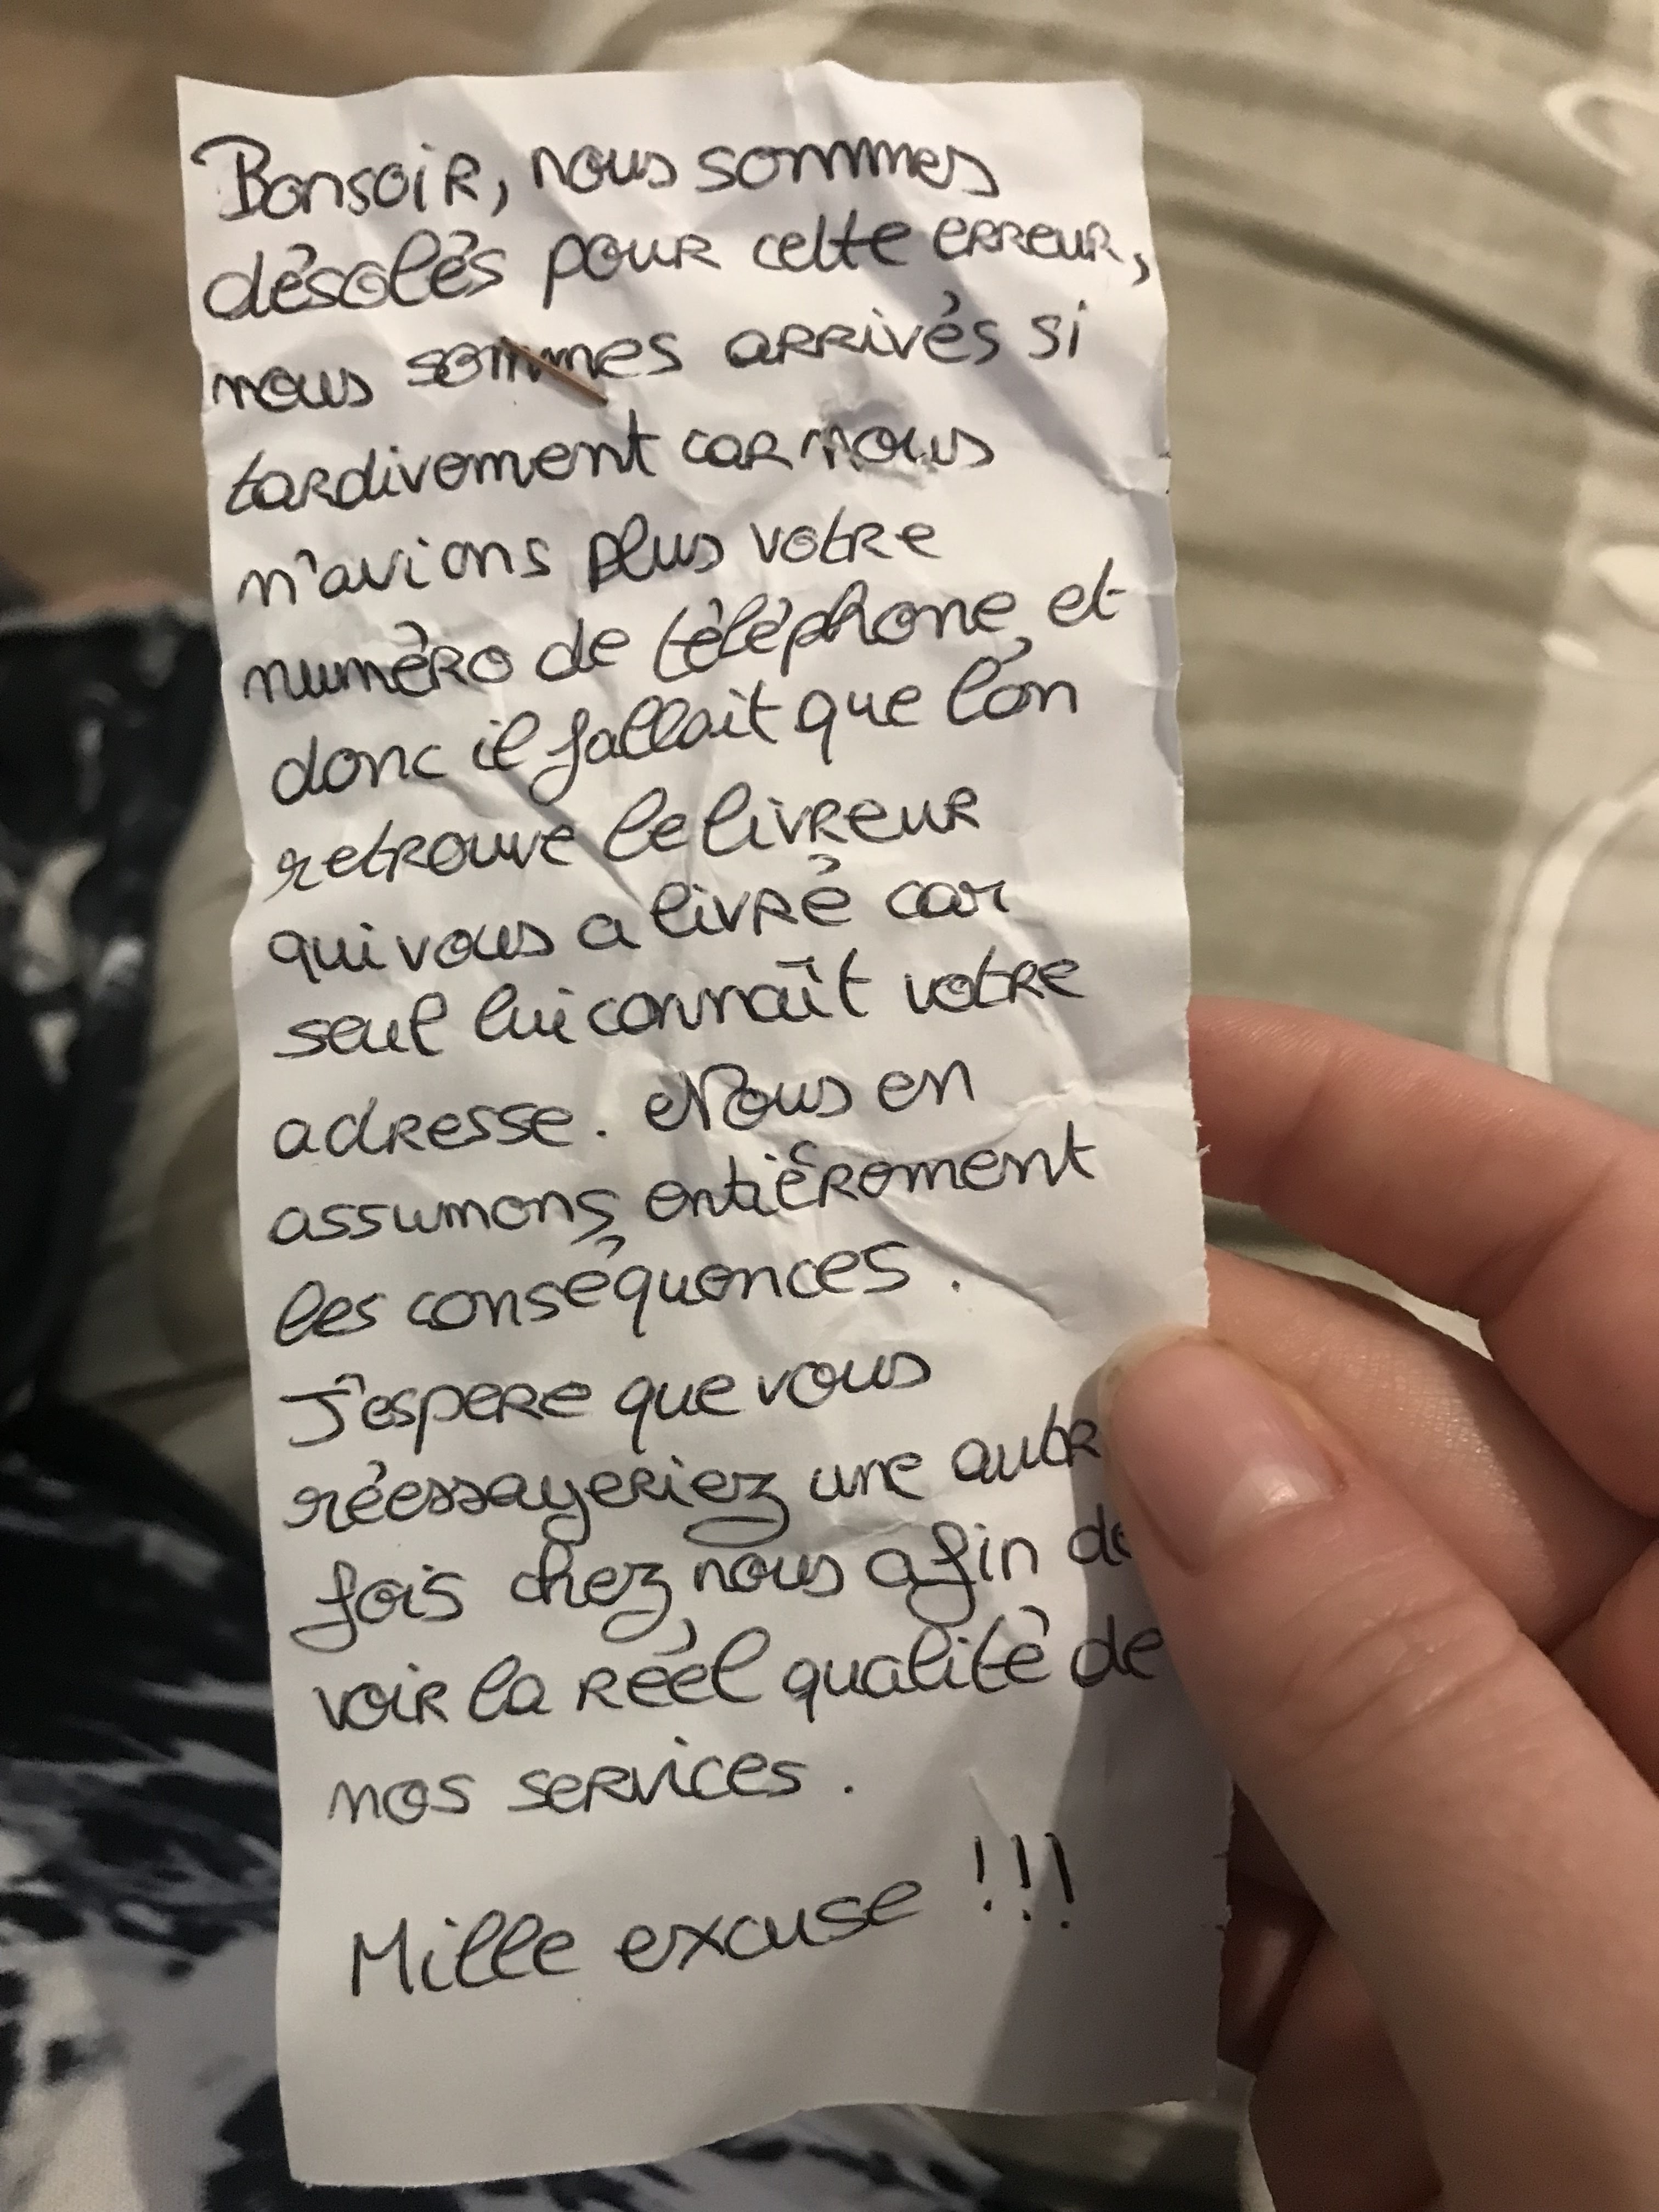 Bonsoir, nous sommes
désolés pour cette erreur,
nous sommes arrivés si
tardivement car nous
n'avions plus votre
numéro de téléphone, et
donc il fallait que l'on
retrouve le livreur
qui vous a livré car
seul lui connaît votre
adresse. Nous en
assumons entièrement
les conséquences.
J'espere que vous
réessayeriez une autr
fois chez nous afin de
voir la réel qualité de
nos services.
Mille excuse !!!